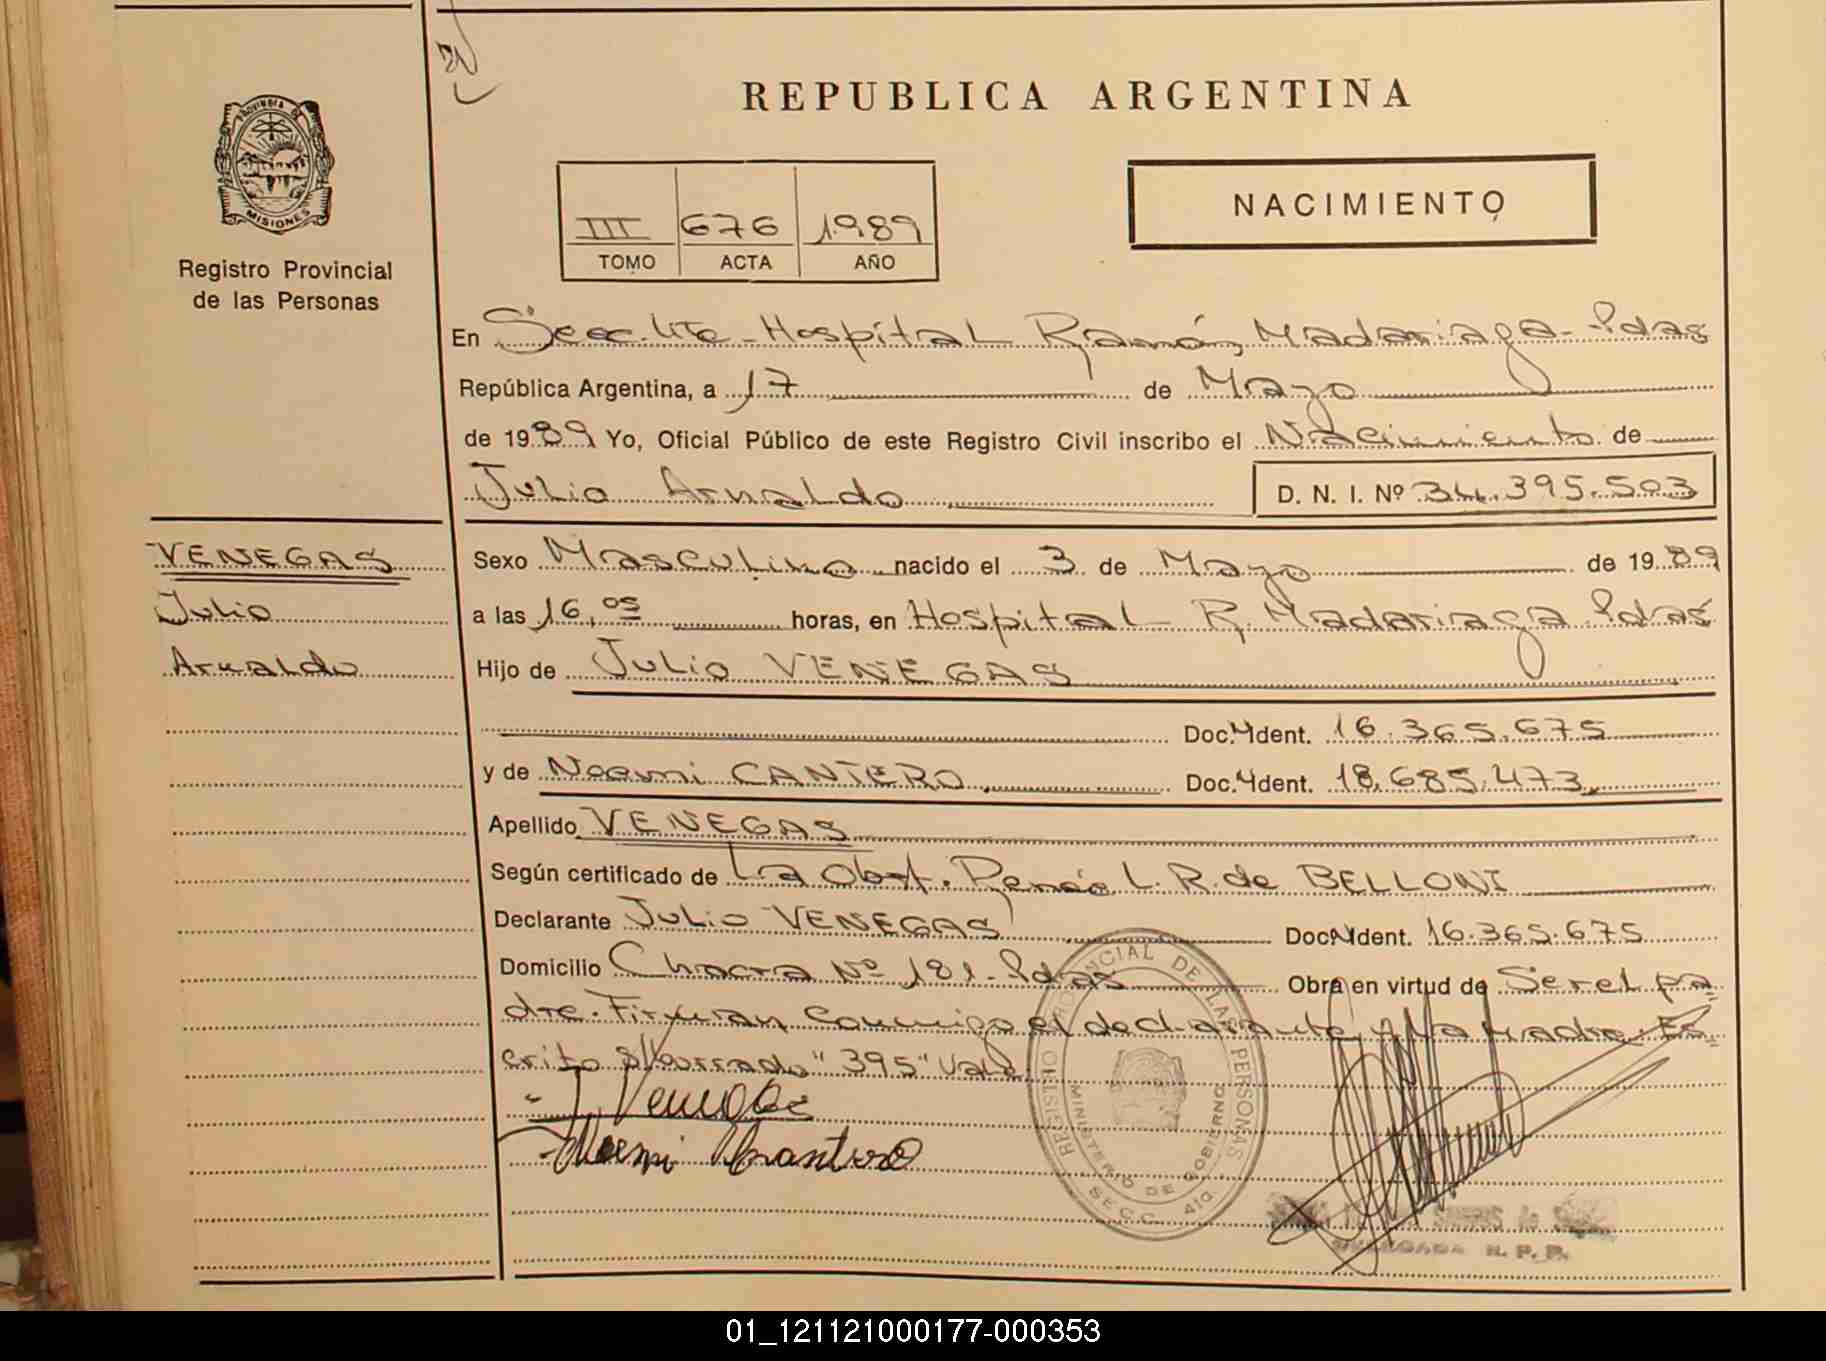 REPUBLICA ARGENTINA
PROVINCIA DE
MISIONES
Registro Provincial
de las Personas
III 676 1989
TOMO ACTA AÑO
NACIMIENTO
En Secc. 4ta - Hospital Ramón Madariaga - Pdas
República Argentina, a 17 de Mayo
de 1989 Yo, Oficial Público de este Registro Civil inscribo el Nacimiento de
Julio Arnaldo D. N. I. Nº 34.395.503
VENEGAS
Julio
Arnaldo
Sexo Masculino nacido el 3 de Mayo de 1989
a las 16,05 horas, en Hospital R. Madariaga Pdas
Hijo de Julio VENEGAS
Doc. Ident. 16.365.675
y de Noemi CANTERO Doc. Ident. 18.685.473
Apellido VENEGAS
Según certificado de La Obst. Renée L. R. de BELLONI
Declarante Julio VENEGAS Doc. Ident. 16.365.675
Domicilio Chacra Nº 181 - Pdas Obra en virtud de Ser el pa=
dre. Firman conmigo el declarante y la madre: Es=
crito s/borrado "395" Vale
J. Venegas
Noemi Cantero
REGISTRO PROVINCIAL DE LAS PERSONAS
MINISTERIO DE GOBIERNO
SECC. 4ta
DELEGADA R. P. P.
01_121121000177-000353